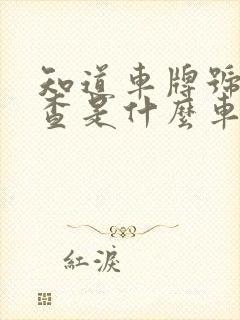 知道車牌號
查是什麼車
紅淚